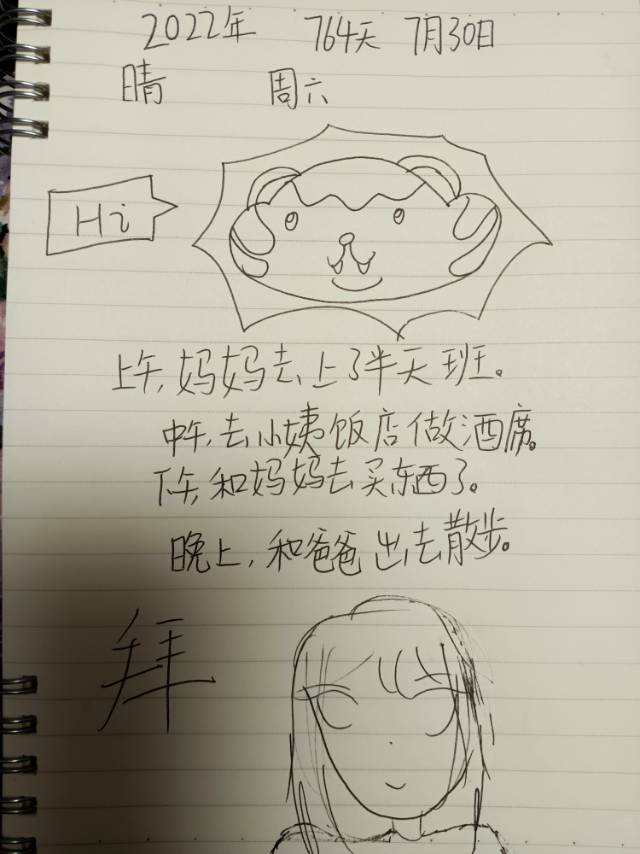 2022年 764天 7月30日
晴 周六
Hi
上午,妈妈去上了半天班。
中午,去小姨饭店做酒席。
下午,和妈妈去买东西了。
晚上,和爸爸出去散步。
拜